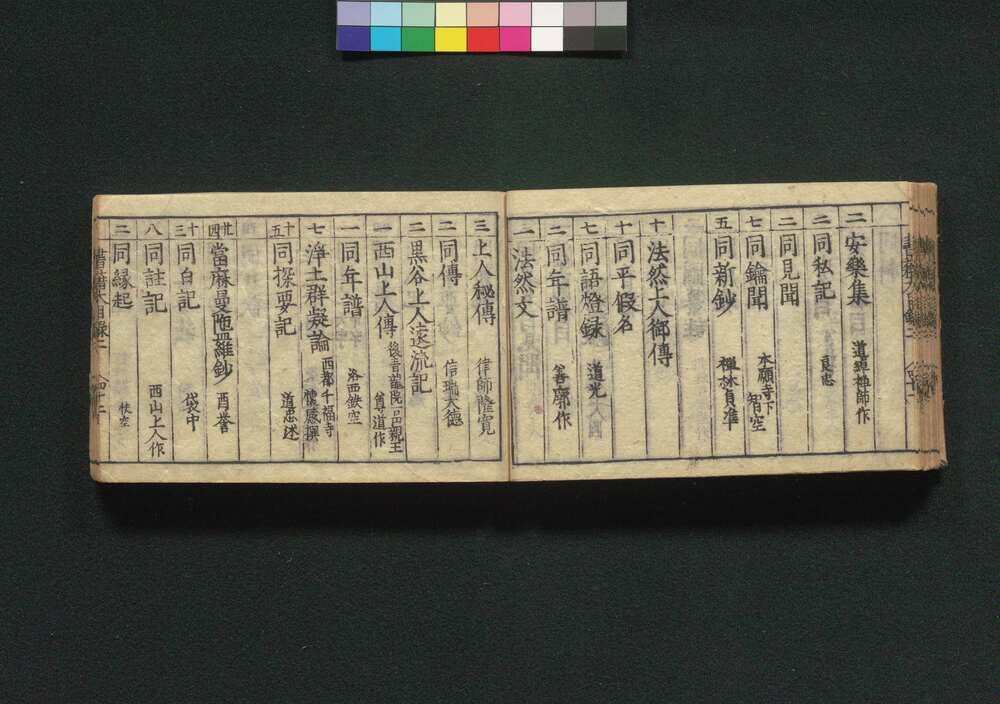 二 安樂集 道綽禅師作
二 同私記 良忠
二 同見聞
七 同鑰聞 本願寺下 智空
五 同新鈔 禅林貞準
十 法然上人御傳
十 同平假名
七 同語燈録 道光
二 同年譜 善廓作
一 法然文
三 上人秘傳 律師隆寛
二 同傳 信瑞大德
二 黒谷上人逺流記
一 西山上人傳 後青龍院一品親王 尊道作
一 同年譜 洛西鉄空
七 淨土群疑論 西都千福寺 懐感撰
十五 同探要記 道忠述
廿四 當麻曼陁羅鈔 酉誉
十三 同白記 袋中
八 同註記 西山上人作
二 同縁起
書籍大目録二 四十二